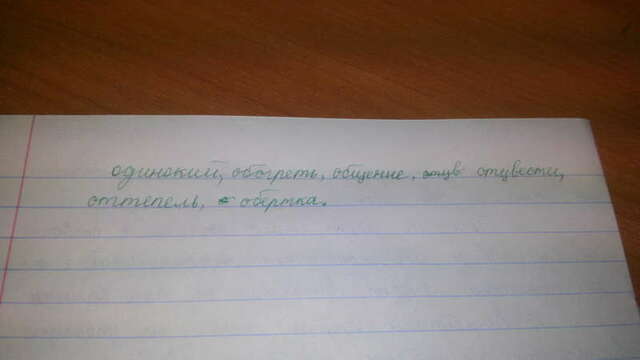 одинокий, обогреть, общение, отцв отцвести,
оттепель, обёртка.